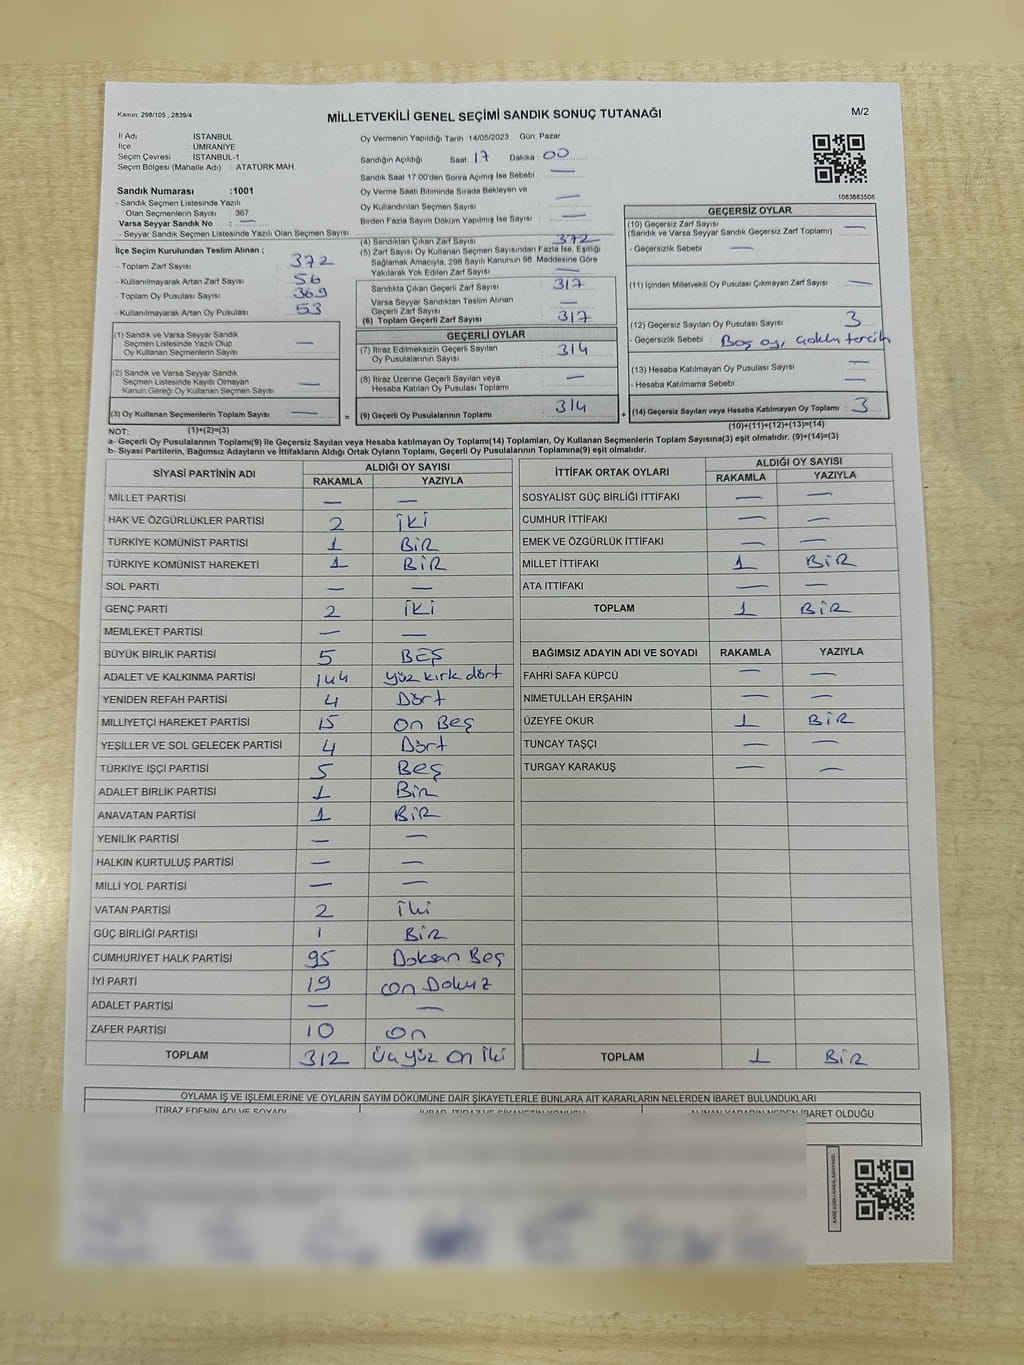 Kanun: 298/105 , 2839/4
MİLLETVEKİLİ GENEL SEÇİMİ SANDIK SONUÇ TUTANAĞI
M/2
İl Adı İSTANBUL
İlçe ÜMRANİYE
Seçim Çevresi İSTANBUL-1
Seçim Bölgesi (Mahalle Adı) : ATATÜRK MAH.
Sandık Numarası :1001
- Sandık Seçmen Listesinde Yazılı
Olan Seçmenlerin Sayısı : 367
Varsa Seyyar Sandık No : —
- Seyyar Sandık Seçmen Listesinde Yazılı Olan Seçmen Sayısı:
Oy Vermenin Yapıldığı Tarih 14/05/2023 Gün: Pazar
Sandığın Açıldığı Saat: 17 Dakika: 00
Sandık Saat 17:00'den Sonra Açılmış İse Sebebi : —
Oy Verme Saati Bitiminde Sırada Bekleyen ve
Oy Kullandırılan Seçmen Sayısı : —
Birden Fazla Sayım Döküm Yapılmış İse Sayısı : —
1083683508
İlçe Seçim Kurulundan Teslim Alınan ;
- Toplam Zarf Sayısı : 372
- Kullanılmayarak Artan Zarf Sayısı : 56
- Toplam Oy Pusulası Sayısı : 369
- Kullanılmayarak Artan Oy Pusulası : 53
(1) Sandık ve Varsa Seyyar Sandık
Seçmen Listesinde Yazılı Olup
Oy Kullanan Seçmenlerin Sayısı : —
(2) Sandık ve Varsa Seyyar Sandık
Seçmen Listesinde Kayıtlı Olmayan
Kanun Gereği Oy Kullanan Seçmen Sayısı : —
(3) Oy Kullanan Seçmenlerin Toplam Sayısı : —
(4) Sandıktan Çıkan Zarf Sayısı : 372
(5) Zarf Sayısı Oy Kullanan Seçmen Sayısından Fazla İse, Eşitliği
Sağlamak Amacıyla, 298 Sayılı Kanunun 98. Maddesine Göre
Yakılarak Yok Edilen Zarf Sayısı : —
Sandıkta Çıkan Geçerli Zarf Sayısı : 317
Varsa Seyyar Sandıktan Teslim Alınan
Geçerli Zarf Sayısı : —
(6) Toplam Geçerli Zarf Sayısı : 317
GEÇERLİ OYLAR
(7) İtiraz Edilmeksizin Geçerli Sayılan
Oy Pusulalarının Sayısı : 314
(8) İtiraz Üzerine Geçerli Sayılan veya
Hesaba Katılan Oy Pusulası Toplamı : —
= (9) Geçerli Oy Pusulalarının Toplamı : 314 +
GEÇERSİZ OYLAR
(10) Geçersiz Zarf Sayısı
(Sandık ve Varsa Seyyar Sandık Geçersiz Zarf Toplamı) : —
- Geçersizlik Sebebi : —
(11) İçinden Milletvekili Oy Pusulası Çıkmayan Zarf Sayısı : —
(12) Geçersiz Sayılan Oy Pusulası Sayısı : 3
- Geçersizlik Sebebi : Boş oy, çoklu tercih
(13) Hesaba Katılmayan Oy Pusulası Sayısı : —
- Hesaba Katılmama Sebebi : —
(14) Geçersiz Sayılan veya Hesaba Katılmayan Oy Toplamı : 3
NOT: (1)+(2)=(3) (10)+(11)+(12)+(13)=(14)
a- Geçerli Oy Pusulalarının Toplamı(9) ile Geçersiz Sayılan veya Hesaba katılmayan Oy Toplamı(14) Toplamları, Oy Kullanan Seçmenlerin Toplam Sayısına(3) eşit olmalıdır. (9)+(14)=(3)
b- Siyasi Partilerin, Bağımsız Adayların ve İttifakların Aldığı Ortak Oyların Toplamı, Geçerli Oy Pusulalarının Toplamına(9) eşit olmalıdır.
SİYASİ PARTİNİN ADI ALDIĞI OY SAYISI
RAKAMLA YAZIYLA
MİLLET PARTİSİ — —
HAK VE ÖZGÜRLÜKLER PARTİSİ 2 İKİ
TÜRKİYE KOMÜNİST PARTİSİ 1 BİR
TÜRKİYE KOMÜNİST HAREKETİ 1 BİR
SOL PARTİ — —
GENÇ PARTİ 2 İKİ
MEMLEKET PARTİSİ — —
BÜYÜK BİRLİK PARTİSİ 5 BEŞ
ADALET VE KALKINMA PARTİSİ 144 yüz kırk dört
YENİDEN REFAH PARTİSİ 4 Dört
MİLLİYETÇİ HAREKET PARTİSİ 15 on Beş
YEŞİLLER VE SOL GELECEK PARTİSİ 4 Dört
TÜRKİYE İŞÇİ PARTİSİ 5 Beş
ADALET BİRLİK PARTİSİ 1 Bir
ANAVATAN PARTİSİ 1 BİR
YENİLİK PARTİSİ — —
HALKIN KURTULUŞ PARTİSİ — —
MİLLİ YOL PARTİSİ — —
VATAN PARTİSİ 2 İki
GÜÇ BİRLİĞİ PARTİSİ 1 BİR
CUMHURİYET HALK PARTİSİ 95 Doksan Beş
İYİ PARTİ 19 on Dokuz
ADALET PARTİSİ — —
ZAFER PARTİSİ 10 on
TOPLAM 312 Üç yüz on İki
İTTİFAK ORTAK OYLARI ALDIĞI OY SAYISI
RAKAMLA YAZIYLA
SOSYALİST GÜÇ BİRLİĞİ İTTİFAKI — —
CUMHUR İTTİFAKI — —
EMEK VE ÖZGÜRLÜK İTTİFAKI — —
MİLLET İTTİFAKI 1 BİR
ATA İTTİFAKI — —
TOPLAM 1 BİR
BAĞIMSIZ ADAYIN ADI VE SOYADI RAKAMLA YAZIYLA
FAHRİ SAFA KÜPCÜ — —
NİMETULLAH ERŞAHİN — —
ÜZEYFE OKUR 1 BİR
TUNCAY TAŞÇI — —
TURGAY KARAKUŞ — —
TOPLAM 1 BİR
OYLAMA İŞ VE İŞLEMLERİNE VE OYLARIN SAYIM DÖKÜMÜNE DAİR ŞİKAYETLERLE BUNLARA AİT KARARLARIN NELERDEN İBARET BULUNDUKLARI
İTİRAZ EDENİN ADI VE SOYADI İHBAR, İTİRAZ VE ŞİKAYETİN KONUSU ALINAN KARARIN NEDEN İBARET OLDUĞU
KARE KODU KARALAMAYINIZ!